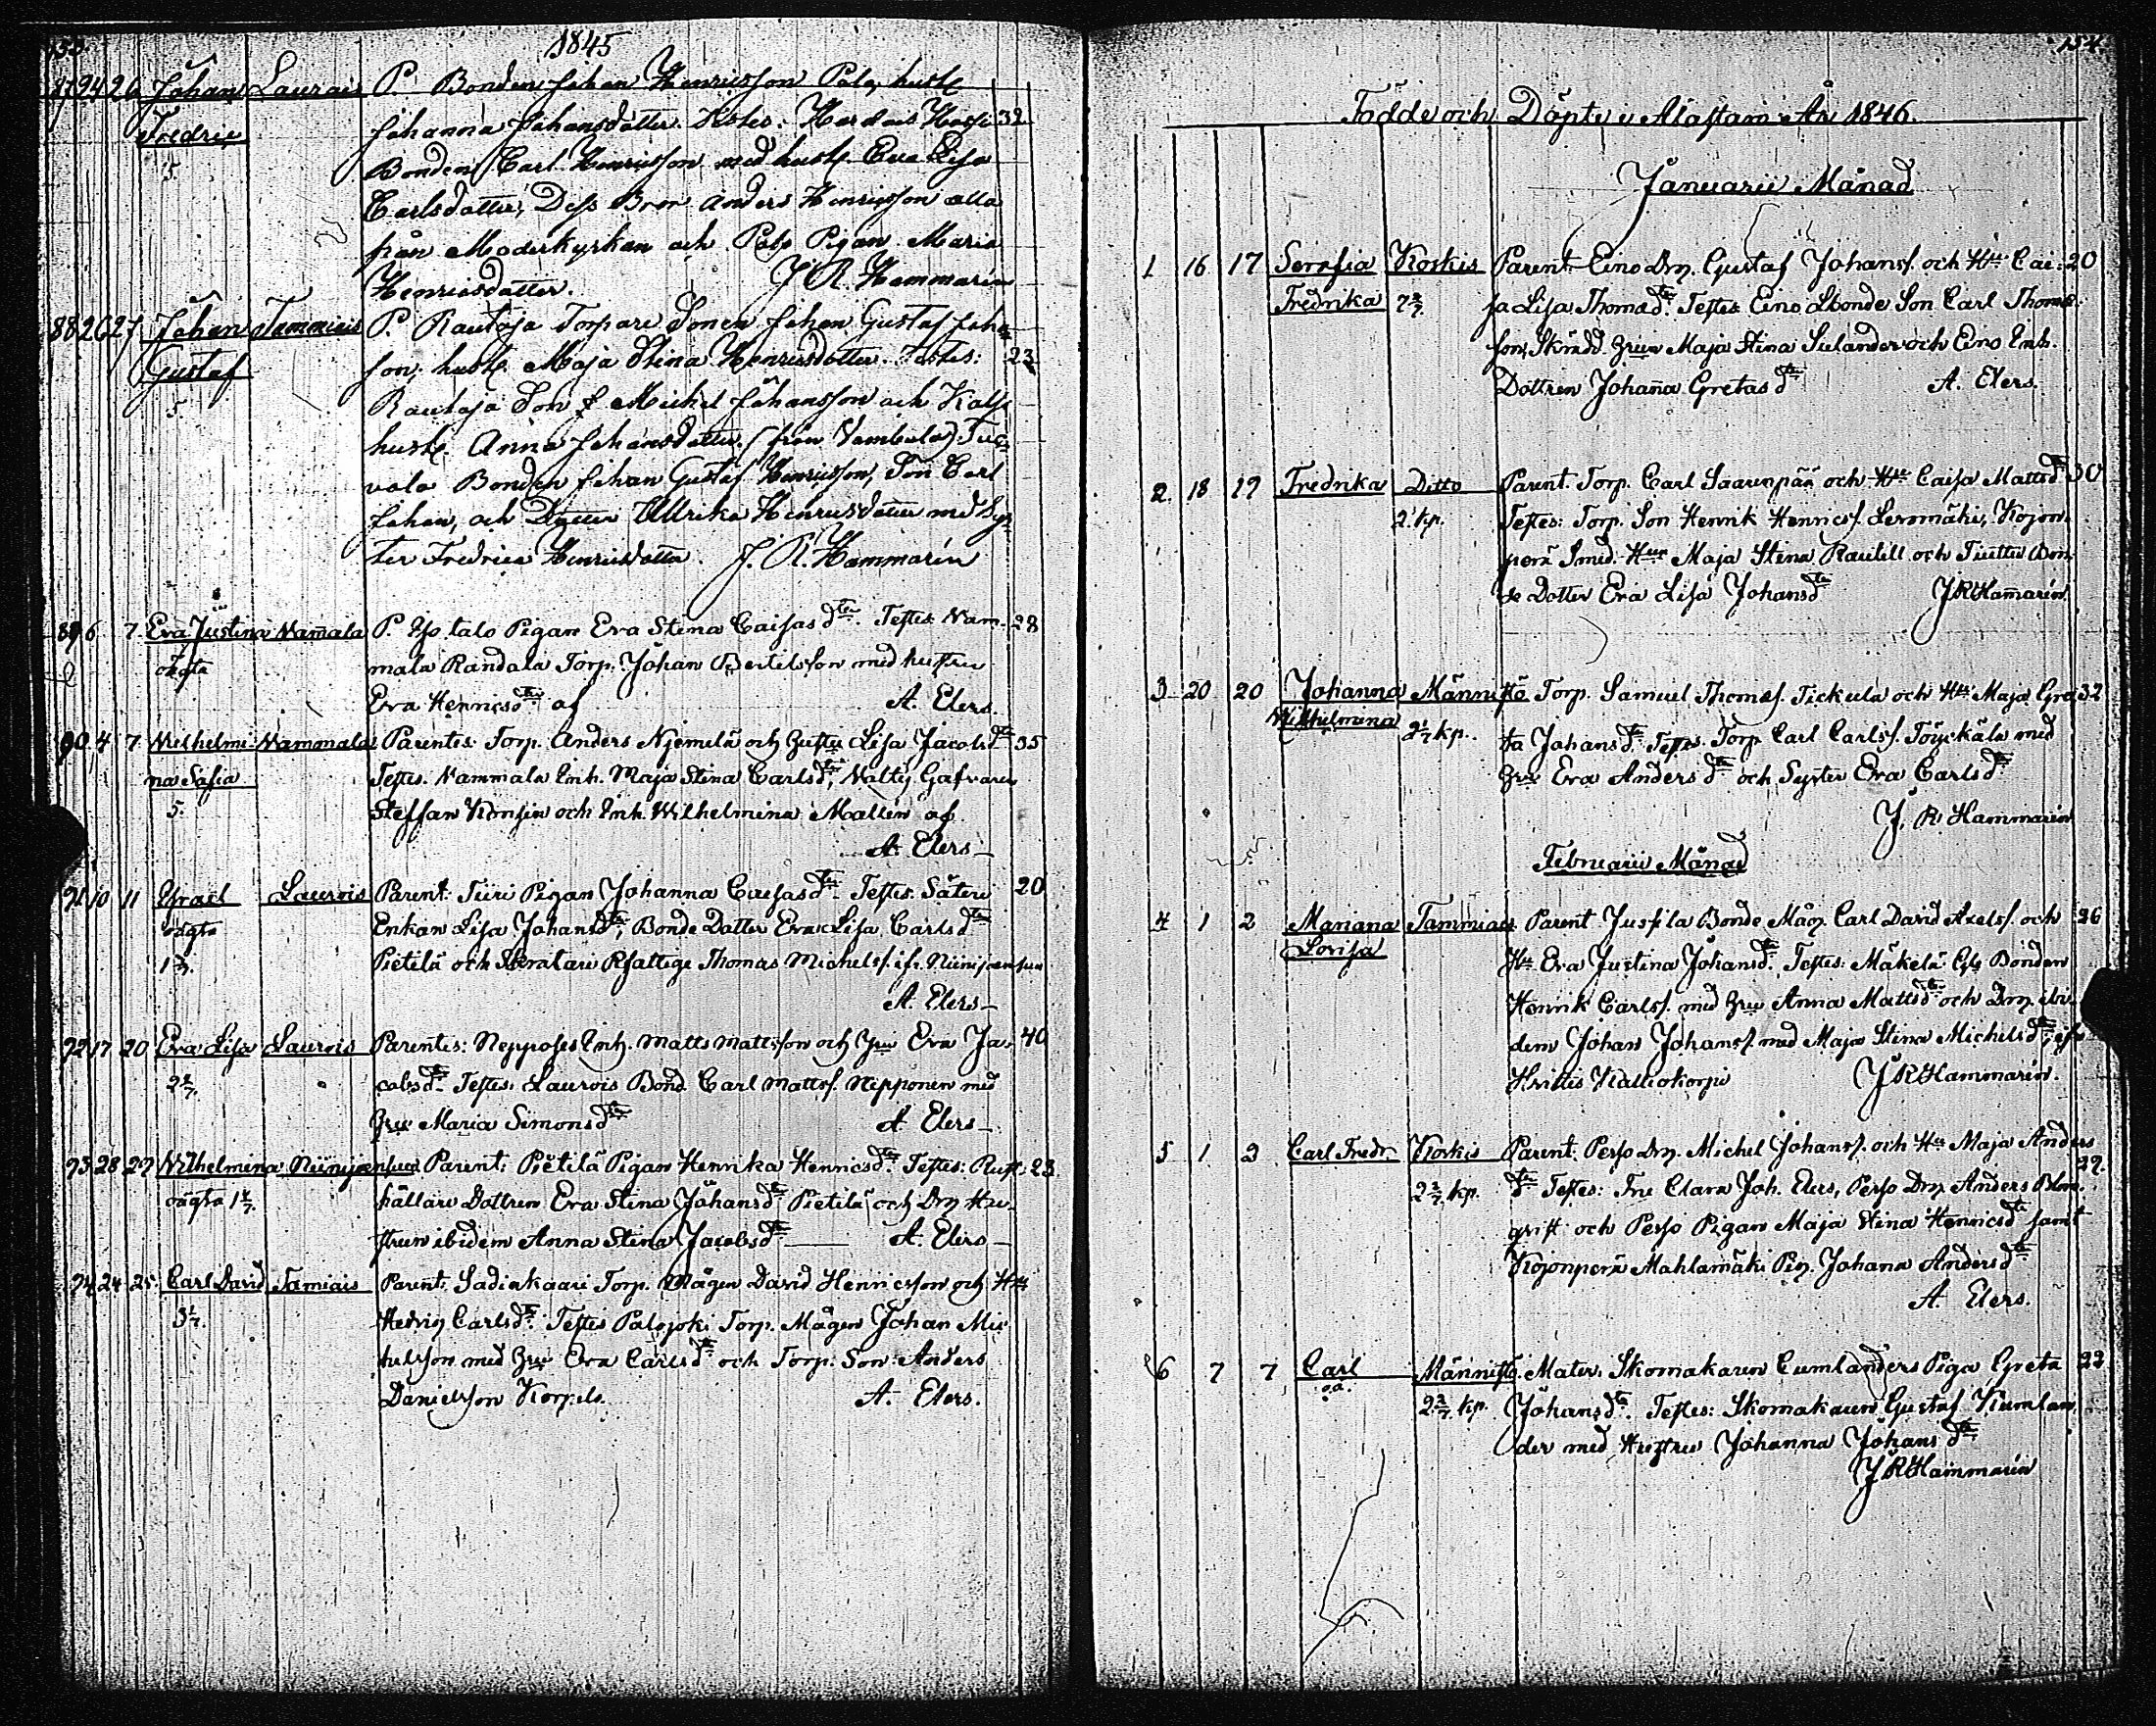 1845
87 24 26 Johan Laurois P. Bonden Johan Henricsson Palo, hust.
Fredric Johanna Johansdotter. Testes: 32
5. Bonden Carl Henricsson med hust. Eva Lisa
Carlsdotter, Dess Bror Anders Henricsson alla
från Moderkyrkan och Palo Pigan Maria
Henricsdotter. J. R. Hammarén
88 26 27 Johan Tammiais P. Rautoja Torpare Sonen Johan Gustaf Johs
Gustaf son, hust. Maja Stina Henricsdotter. Testes: 23
5 Rautoja Son Michel Johansson och
hust. Anna Johansdotter (från Vambula).
vola Bonden Johan Gustaf Henricsson, Son Carl
Johan, och Dotter Ullrika Henricsdotter med Sys
ter Fredrica Henricsdotter. J. R. Hammarén
89 6 7 Eva Justina Vamala P. talo Pigan Eva Stina Caisasdter. Testes Vam- 28
oägta mala Randala Torp. Johan Bertilsson med hustru
Eva Henricsdter af A. Elers.
90 4 7 Wilhelmi- Vammala Parentes Torp. Anders Njemelä och Hustru Lisa Jacobsdtr 35
na Sofia Testes. Vammala Inh. Maja Stina Carlsdtr,
5. Steffan och Inh. Wilhelmina Mallén af
A. Elers
91 10 11 Israel Laurois Parent: Tiiri Pigan Johanna Caisasdtr. Testes. Säteri 20
oägta Enkan Lisa Johansdtr, Bonde Dotter Eva Lisa Carlsdtr
Pietilä och Thomas Michelss. ifr. Niinijoensuu
A. Elers
92 17 20 Eva Lisa Laurois Parentes: Inh. Matts Mattsson och Hru Eva Ja- 40
2 2/7. cobsdtr. Testes: Laurois Bond. Carl Mattss. Nipponen med
Hru Maria Simonsdtr A. Elers
93 28 29 Wilhelmina Niinijoensuu Parent: Pietilä Pigan Henrika Henricsdtr. Testes: Rust- 23
oägta hållare Dottren Eva Stina Johansdtr Pietilä och Drg Hu-
strun ibidem Anna Stina Jacobsdtr A. Elers
94 24 25 Carl David Tamiais Parent: Sadinkaari Torp. Mågen David Henricsson och Hu
Hedvig Carlsdtr. Testes Palojoki Torp. Mågen Johan Mic-
helsson med Hru Eva Carlsdtr och Torp. Son Anders
Danielsson Korpela. A. Elers.
154
Födde och Döpte i Alastaro År 1846.
Januarii Månad
1 16 17 Serafia Koskis Parent. Eino Drg. Gustaf Johanss. och Hu Cai- 20
Fredrika 2 2/7. sa Lisa Thomasdtr. Testes Eino Bonde Son Carl Thomas-
son, Hrun Maja Stina Selander och Eino Inh.
Dottren Johanna Gretasdtr A. Elers.
2. 18 19 Fredrika Ditto Parent. Torp. Carl Saarenpää och Hu Caisa Mattsdtr 30
2. kp. Testes: Torp. Son Henrik Henricss. Leromäki, Kojon-
perä Smed. Hun Maja Stina och Bon-
de Dotter Eva Lisa Johansdtr J R Hammarén.
3 20 20 Johanna Männistö Torp. Samuel Thomass. Tickula och Hu Maja Gre- 32
Wilhelmina kp. ta Johansdtr. Testes. Torp Carl Carlss. med
Hru Eva Andersdtr och Syster Eva Carlsdtr
J. R. Hammarén
Februarii Månad
4 1 2 Mariana Tammiais Parent Jussila Bonde Måg. Carl David Axelss. och 26
Lovisa Hu Eva Justina Johansdtr. Testes: Mäkelä Bonden
Henrik Carlss. med Hru Anna Mattsdtr och Drg. ibi-
dem Johan Johanss. med Maja Stina Michelsdtr, ifr.
Kalliokorpi J R Hammarén.
5 1 2 Carl Fredr. Koskis Parent: Perho Drg. Michel Johanss. och Hu Maja Anders
2 2/7 kp. dtr Testes: Fru Clara Joh. Elers, Perho Drg. Anders Blom- 29.
qvist och Perho Pigan Maja Stina Henricsdtr samt
Kojonperä Mahlamäki Pig. Johana Andersdtr
A. Elers.
6 7 7 Carl Männistö. Mater. Skomakaren Cumlanders Piga Greta 22
o.ä. 2 2/7. kp. Johansdtr. Testes: Skomakaren Gustaf Kumlan
der med Hustru Johanna Johansdtr
J R Hammarén